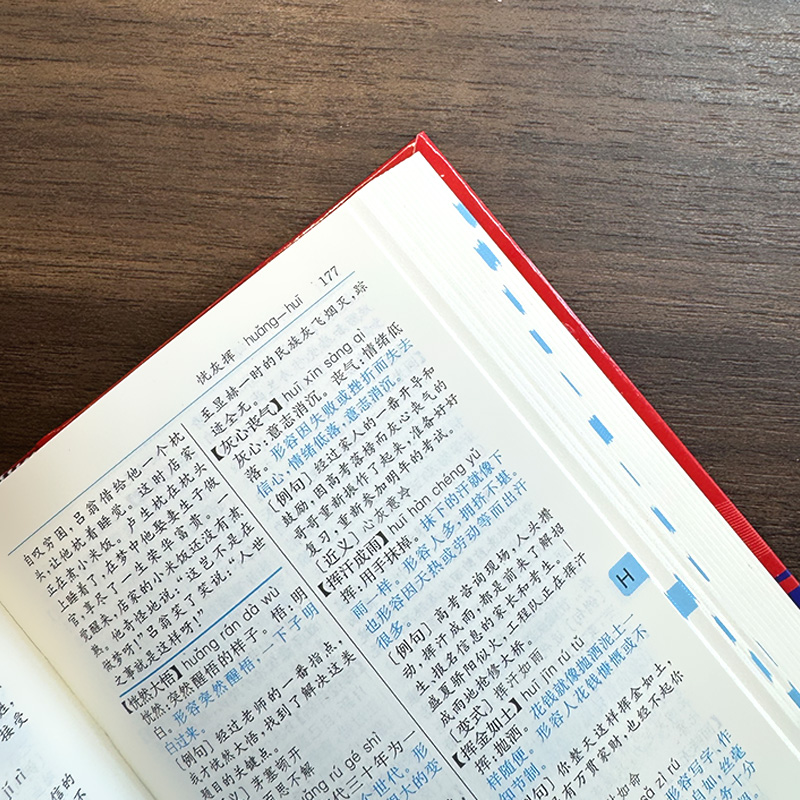 恍灰挥 huǎng—huī 177
自叹穷困,吕翁借给他一个枕
头,让他枕着睡觉。这时店家
正在煮小米饭。卢生枕在枕头
上睡着了,在梦中他娶妻生子做
官,享尽了一生荣华富贵。一
觉醒来,店家的小米饭还没有煮
熟。他奇怪地说:“这岂不是在
做梦呀!”吕翁笑了笑说:“人世
之事就是这样呀!”
【恍然大悟】huǎng rán dà wù
恍然:突然醒悟的样子。悟:明
白。形容突然醒悟,一下子明
白过来。
[例句] 经过老师的一番指点,
步才恍然大悟,找到了解决这类
题目的关键点。
茅塞顿开
思不解
rú gé shì
代三十年为一
至显赫一时的民族灰飞烟灭,踪
迹全无。
【灰心丧气】huī xīn sàng qì
灰心:意志消沉。丧气:情绪低
落。形容因失败或挫折而失去
信心,情绪低落,意志消沉。
[例句] 经过家人的一番开导和
鼓励,因高考落榜而灰心丧气的
哥哥重新振作了起来,准备好好
复习,重新参加明年的考试。
[近义] 心灰意冷
【挥汗成雨】huī hàn chéng yǔ
挥:用手抹掉。抹下的汗就像下
雨一样。形容人多,拥挤不堪。
也形容因天热或劳动等而出汗
很多。
[例句] 高考咨询现场,人头攒
动,挥汗成雨,都是前来了解招
生、报名信息的家长和考生。/
盛夏骄阳似火,工程队正在挥汗
成雨地抢修大桥。
[变式] 挥汗如雨
【挥金如土】huī jīn rú tǔ
挥:抛洒。花钱就像抛洒泥土一
样随便。形容人花钱慷慨或不
知节制。
你整天这样挥金如土,
有万贯家财,也经不起你
如命
zì rú
形容写字、作
自如,丝毫
务十分
H